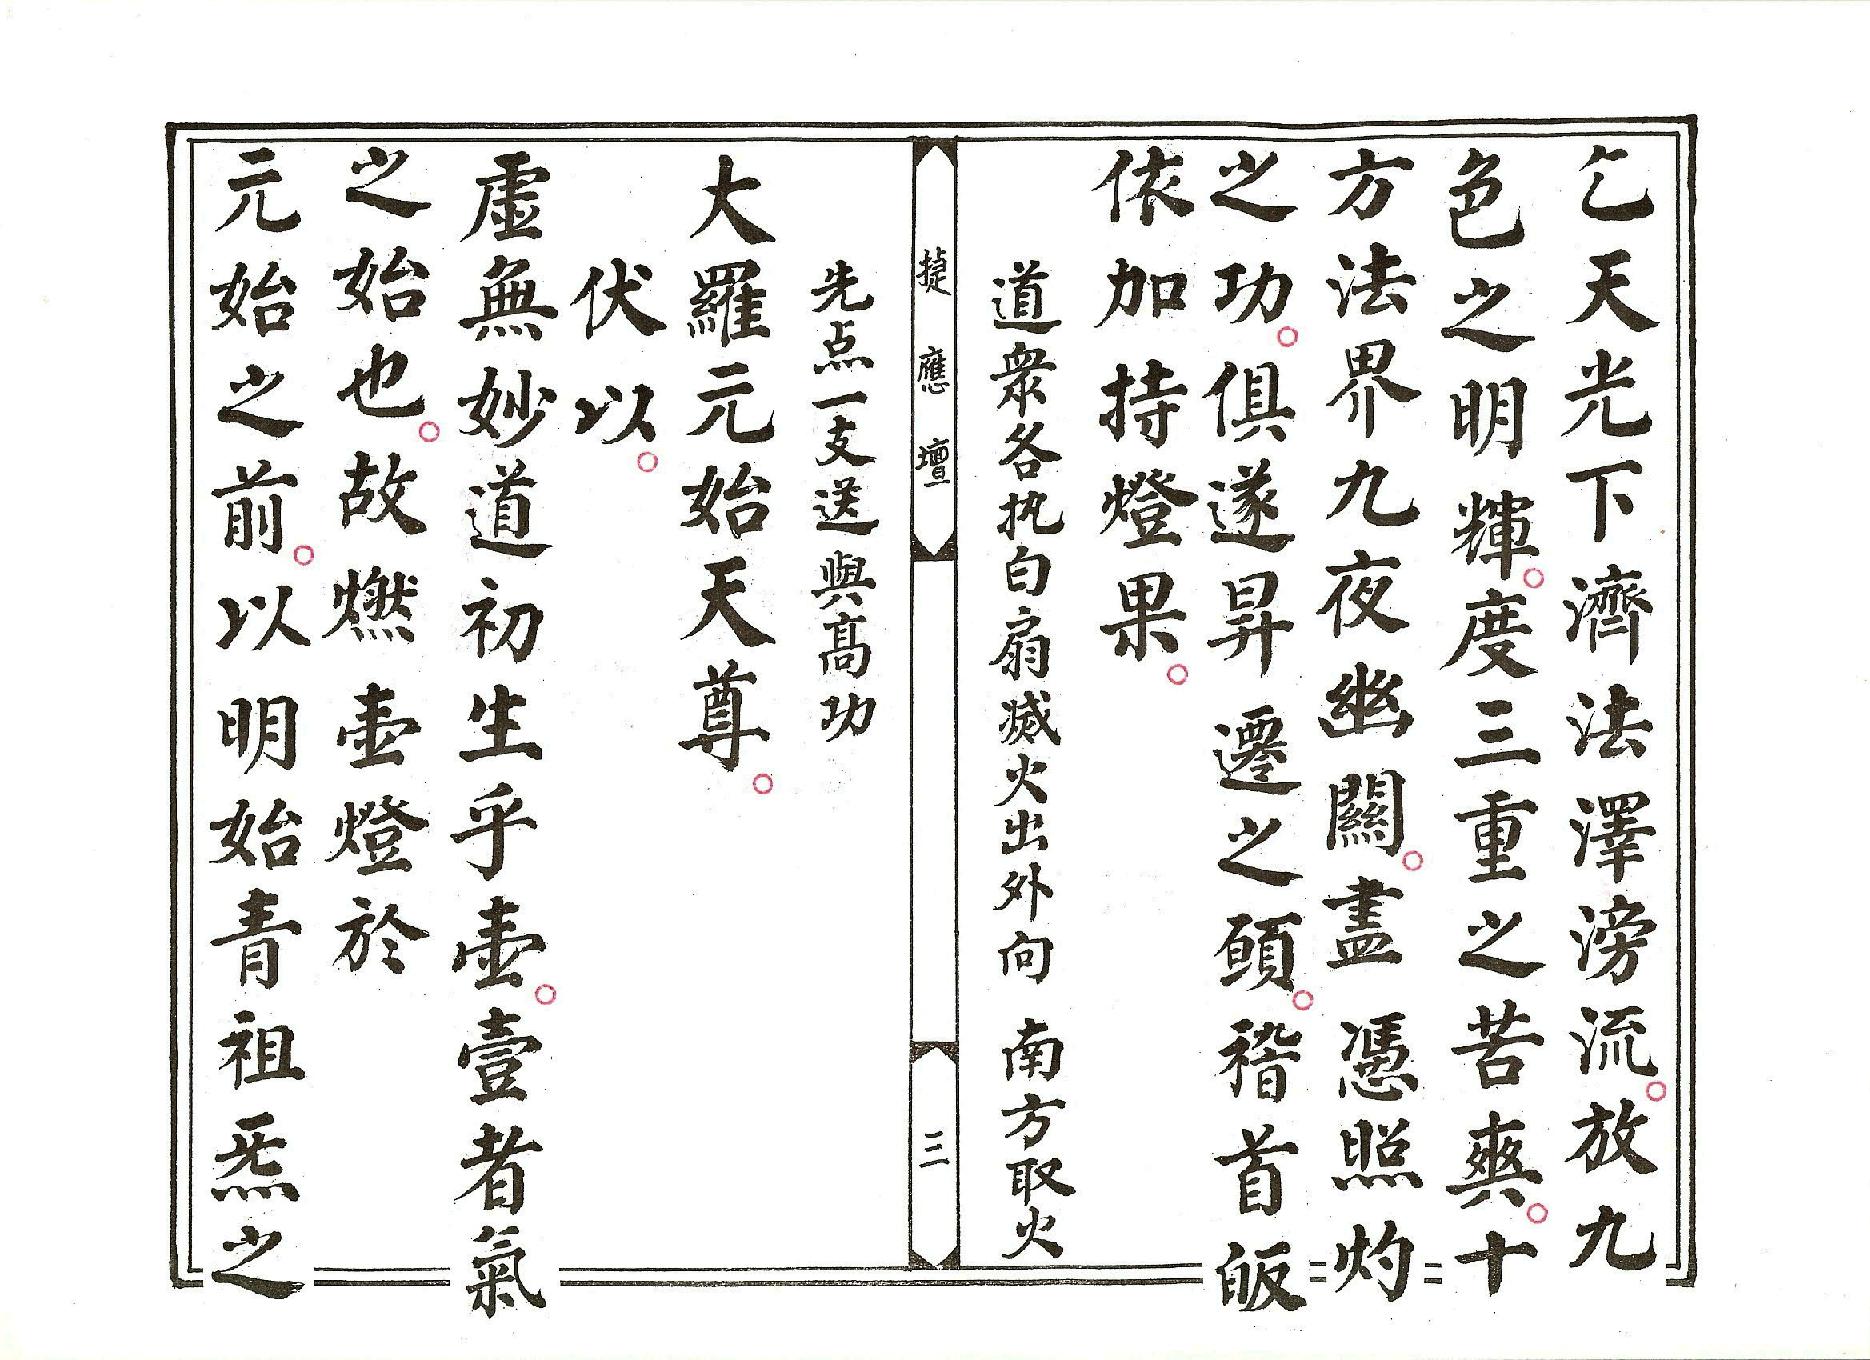 乞天光下濟法澤滂流。放九
色之明輝。度三重之苦爽。十
方法界九夜幽關。盡憑照灼
之功。俱遂昇遷之願。稽首皈
依加持燈果。
道衆各执白扇滅火出外向 南方取火
捷應壇
三
先点一支送與高功
大羅元始天尊。
伏以。
虛無妙道初生乎壷。壹者氣
之始也。故燃壷燈於
元始之前。以明始青祖炁之